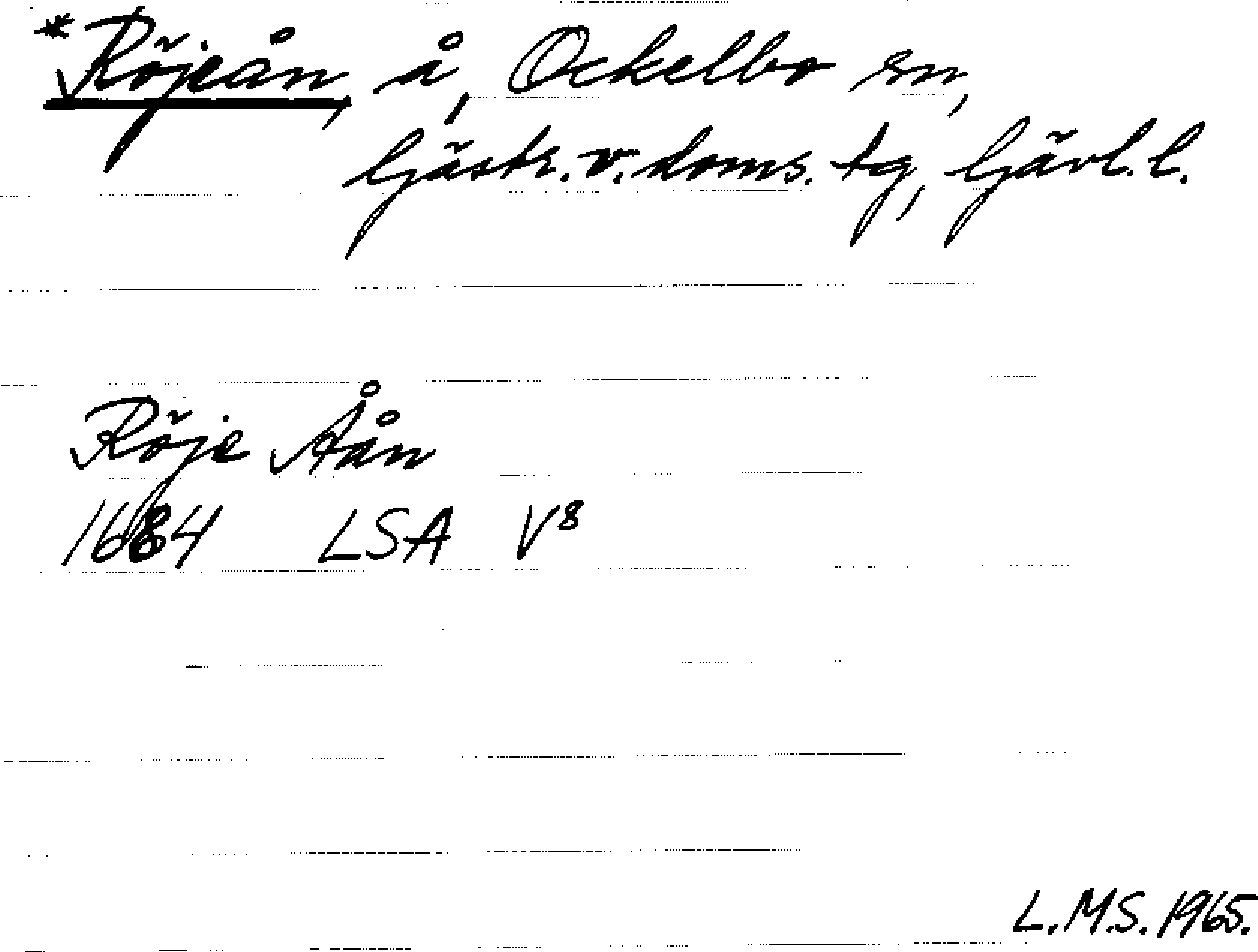 *Röjeån, å, Ockelbo sn,
Gästr. v. doms. tg, Gävl. l.
Röje Åån
1684 LSA V⁸
L.M.S. 1965.